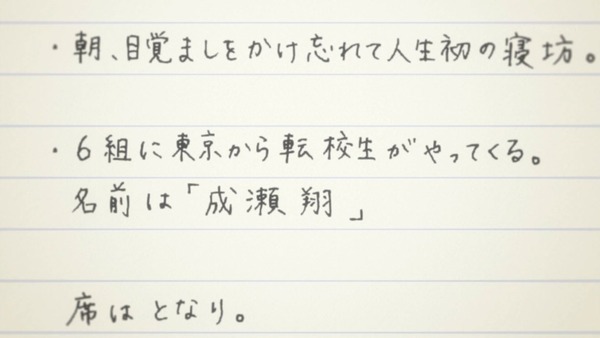 ・朝、目覚ましをかけ忘れて人生初の寝坊。
・6組に東京から転校生がやってくる。
名前は「成瀬翔」
席はとなり。